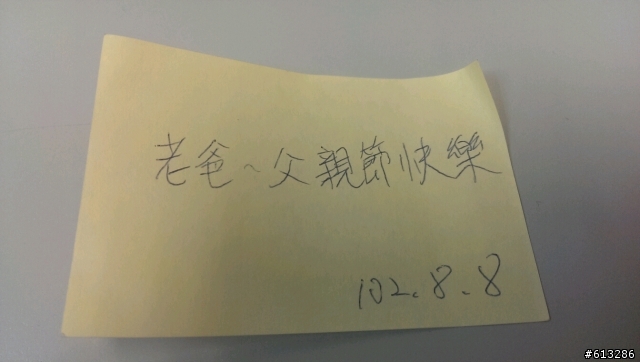 老爸~父親節快樂
102.8.8
#613286